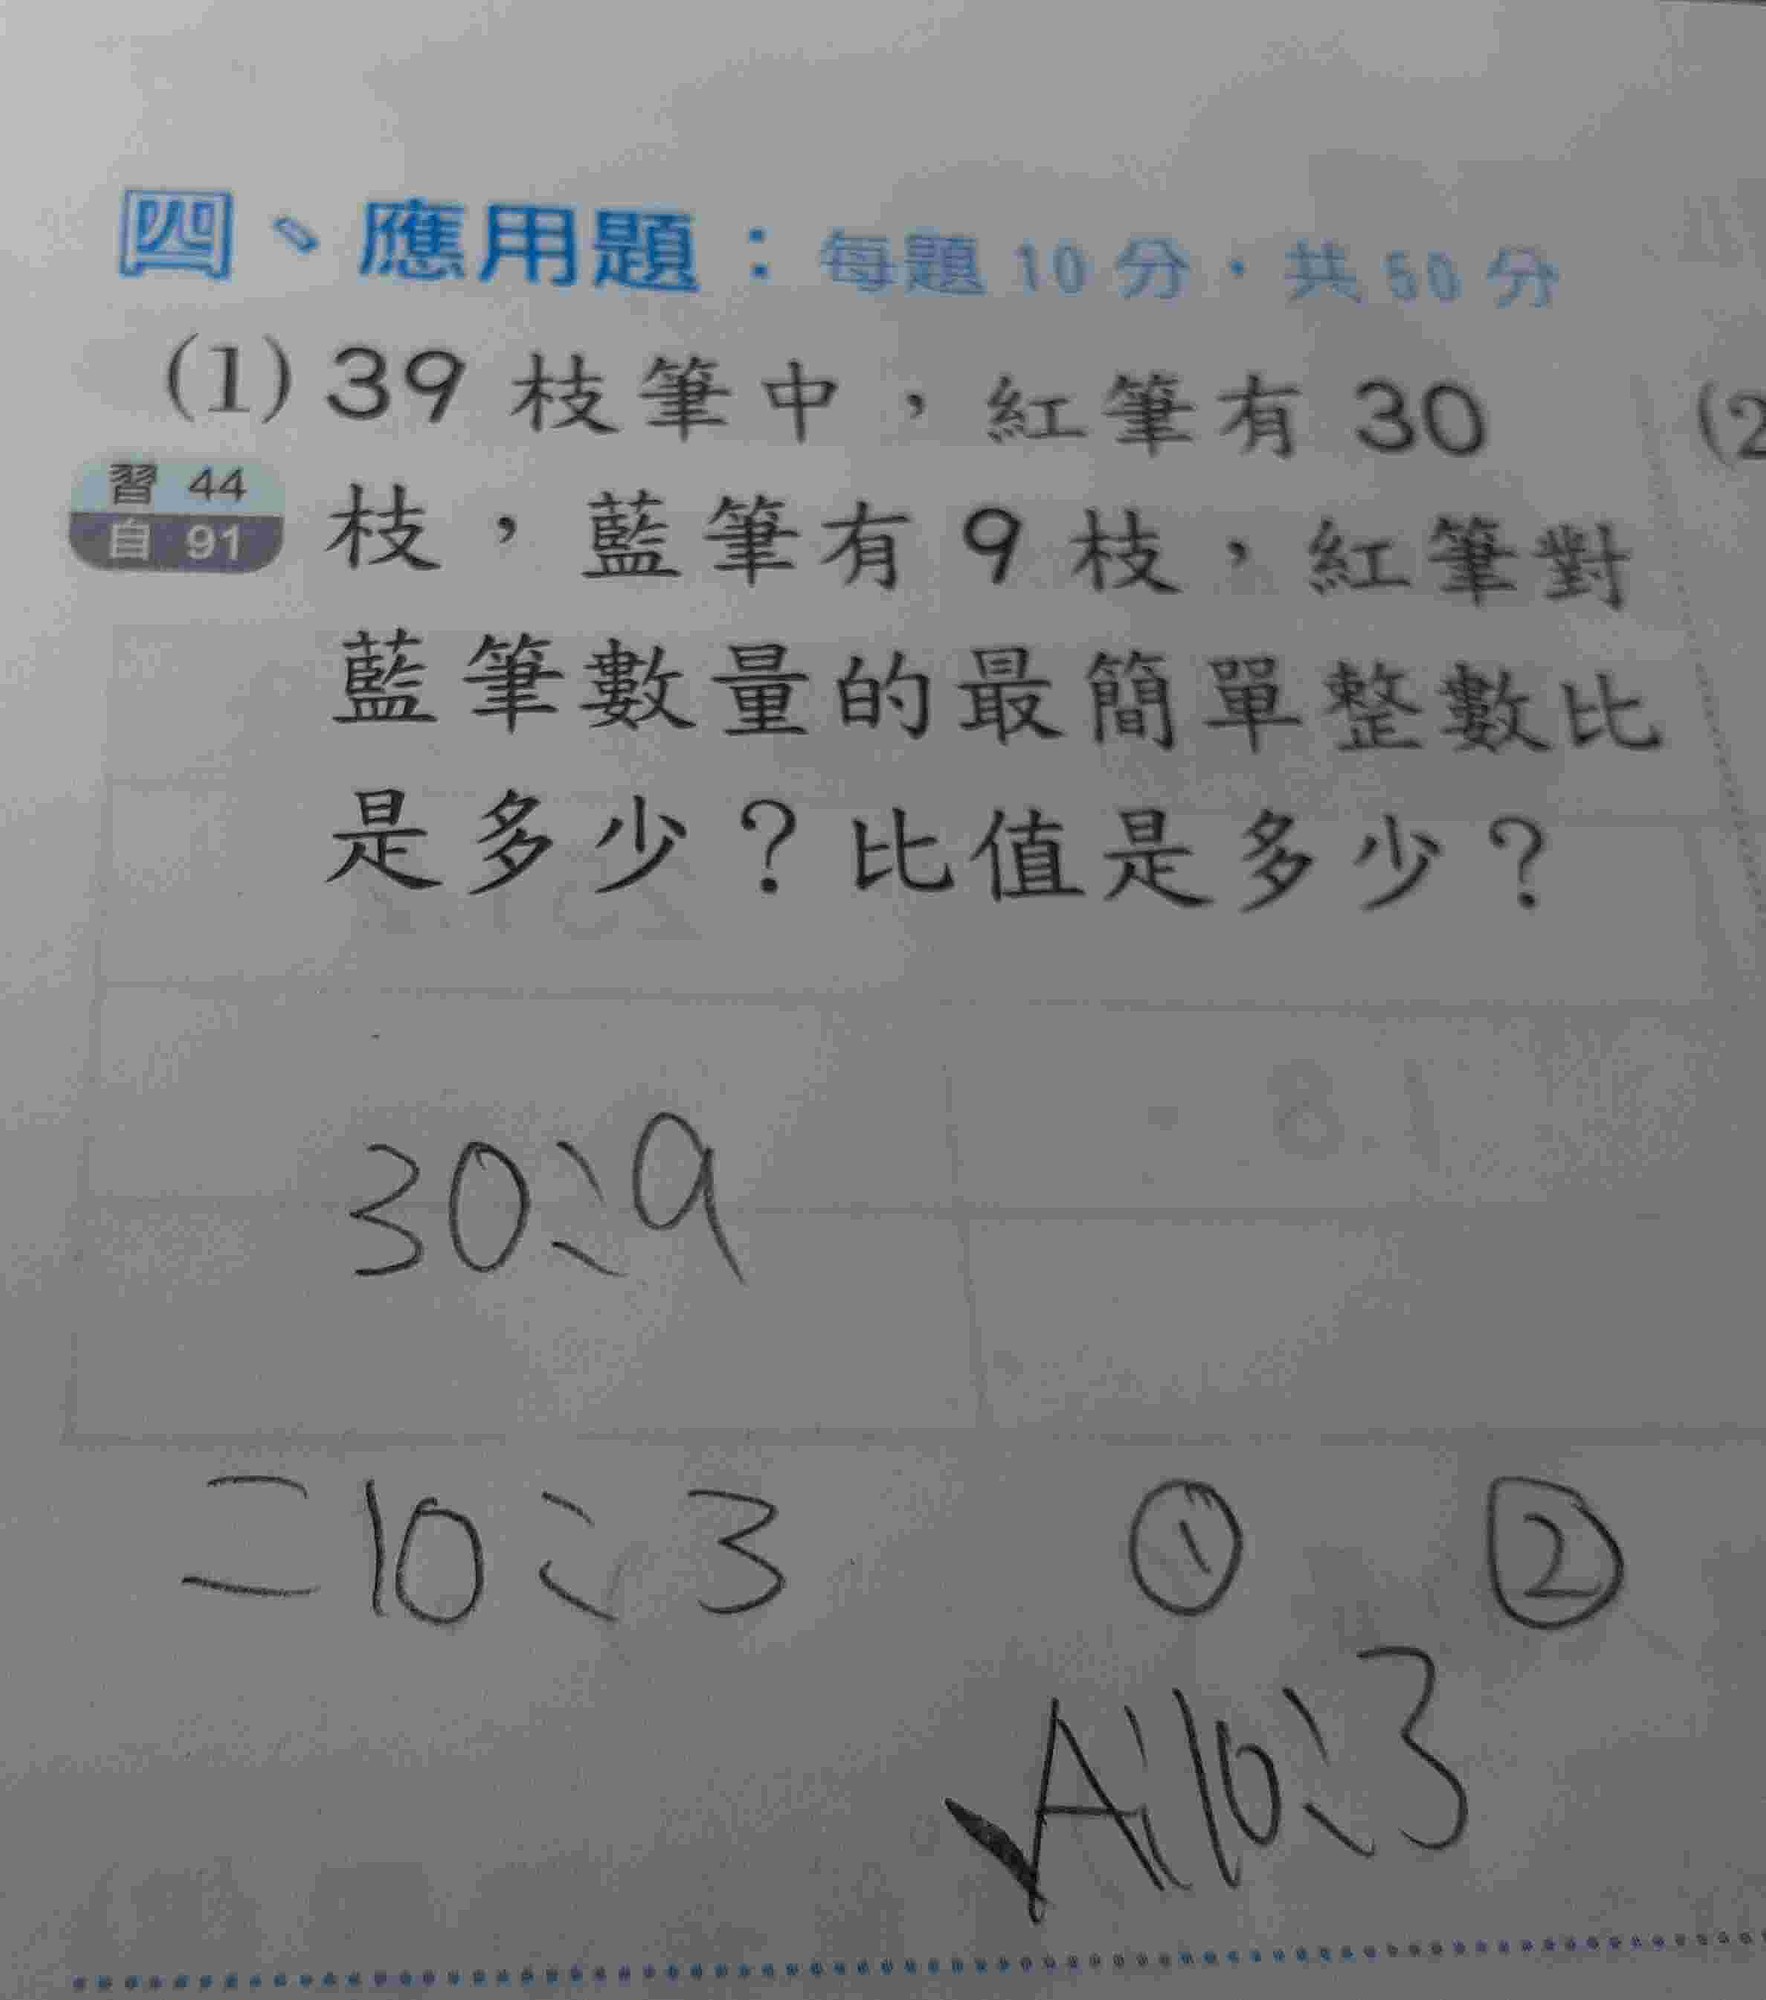 四、應用題：每題 10 分，共 50 分
(1) 39 枝筆中，紅筆有 30
習 44
自 91
枝，藍筆有 9 枝，紅筆對
藍筆數量的最簡單整數比
是多少？比值是多少？
(2
30:9
=10:3
① ②
A:10:3